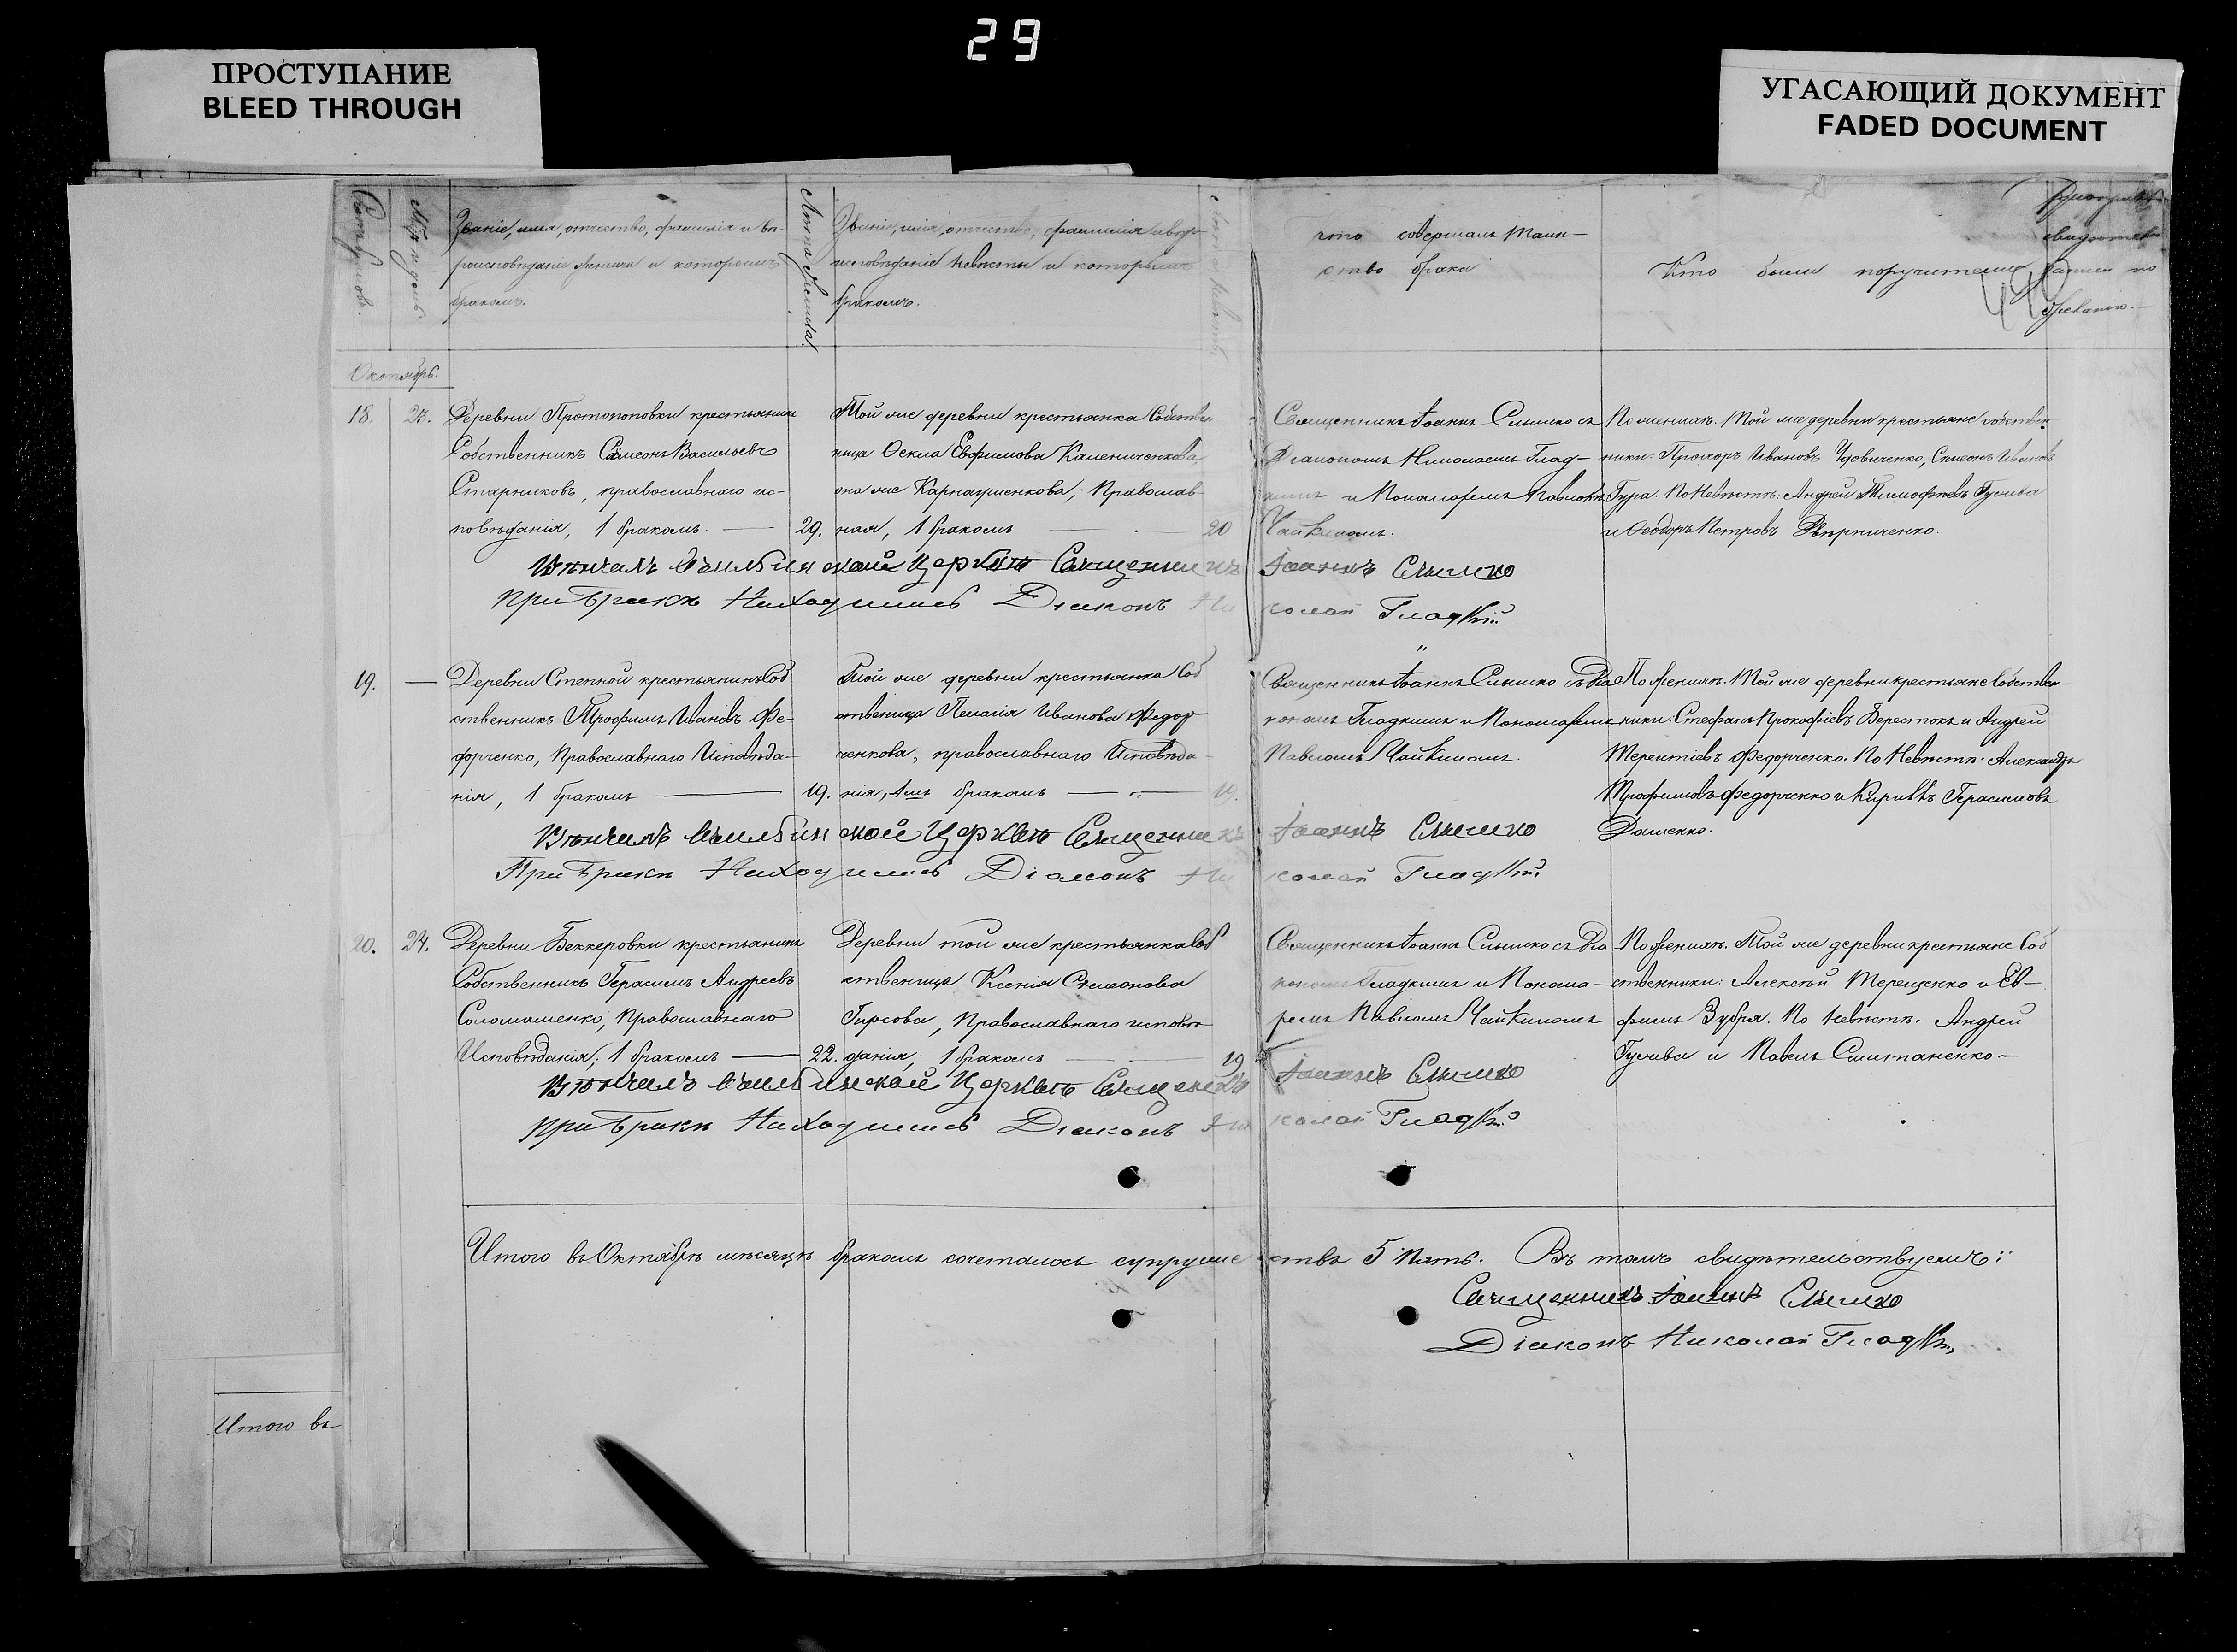 29
ПРОСТУПАНИЕ
BLEED THROUGH
УГАСАЮЩИЙ ДОКУМЕНТ
FADED DOCUMENT
Счетъ браковъ.
Мѣс. и день
Званіе, имя, отчество, фамилія и вѣ-
роисповѣданіе жениха и которымъ
бракомъ.
Лѣта жениха.
Званіе, имя, отчество, фамилія и вѣро-
исповѣданіе невѣсты и которымъ
бракомъ.
Лѣта невѣсты
Кто совершалъ таин-
ство брака
Кто были поручители
свидѣтелей
записи по
желанію.
Октябрь.
18.
23.
Деревни Протопоповки крестьянинъ
Собственникъ Самсонъ Васильевъ
Старниковъ, православнаго ис-
повѣданія, 1 бракомъ. —
29.
Той же деревни крестьянка Собствен-
ница Ѳекла Евфимова Калениченкова,
она же Карнаушенкова, Православ-
ная, 1 бракомъ —
20
Священникъ Іоаннъ Слышко съ
Діакономъ Николаемъ Глад-
кимъ и Пономаремъ Павломъ
Чайкиномъ.
По женихѣ. Той же деревни крестьяне собствен-
ники: Прохоръ Ивановъ Чуовиченко, Симеонъ Ивановъ
Гура. По Невѣстѣ: Андрей Тимофѣевъ Гужва
и Ѳеодоръ Петровъ Дверниченко.
Вѣнчалъ Церкви Священникъ Іоаннъ Слышко
При Бракѣ Находился Діаконъ Николай Гладкій
19.
—
Деревни Степной крестьянинъ Соб
ственникъ Трофимъ Ивановъ Фе-
дорченко, Православнаго Исповѣда-
нія, 1 бракомъ —
19.
Той же деревни крестьянка Соб
ственница Пелагія Иванова Федор
ченкова, православнаго Исповѣда-
нія, 1мъ бракомъ —
19.
Священникъ Іоаннъ Слышко съ Діа
кономъ Гладкимъ и Пономаремъ
Павломъ Чайкиномъ.
По женихѣ. Той же деревни крестьяне Собствен-
ники: Стефанъ Прокофіевъ Берестокъ и Андрей
Терентіевъ Федорченко. По Невѣстѣ: Александръ
Трофимовъ Федорченко и Кириллъ Герасимовъ
Дашенко.
Вѣнчалъ Церкви Священникъ Іоаннъ Слышко
При Бракѣ Находился Діаконъ Николай Гладкій
20.
24.
Деревни Беккеровки крестьянинъ
Собственникъ Герасимъ Андреевъ
Соломашенко, Православнаго
Исповѣданія, 1 бракомъ —
22.
Деревни той же крестьянка Соб
ственница Ксенія Симеонова
Гирсова, Православнаго исповѣ
данія, 1 бракомъ —
19
Священникъ Іоаннъ Слышко съ Діа
кономъ Гладкимъ и Понома-
ремъ Павломъ Чайкиномъ
По женихѣ. Той же деревни крестьяне Соб
ственники: Алексѣй Терещенко и Ев-
фимъ Зубря. По Невѣстѣ. Андрей
Гужва и Павелъ Смитаненко.—
Вѣнчалъ Церкви Священникъ Іоаннъ Слышко
При Бракѣ Находился Діаконъ Николай Гладкій
Итого въ Октябрѣ мѣсяцѣ бракомъ сочеталось супружествъ 5 пять. Въ томъ свидѣтельствуемъ:
Священникъ Іоаннъ Слышко
Діаконъ Николай Гладкій
Итого въ